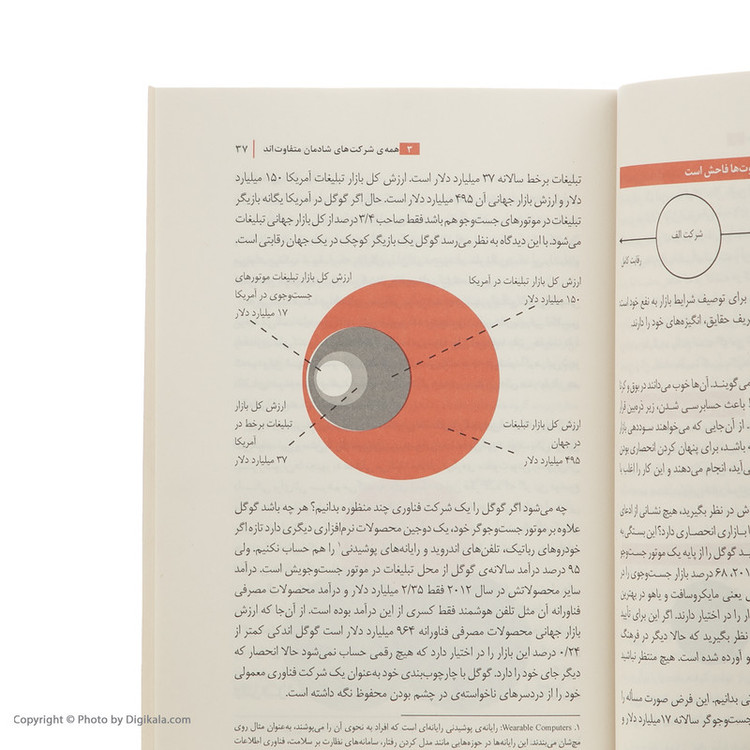 ۳ همه‌ی شرکت‌های شادمان متفاوت‌اند ۳۷
تبلیغات برخط سالانه ۳۷ میلیارد دلار است. ارزش کل بازار تبلیغات آمریکا ۱۵۰ میلیارد
دلار و ارزش بازار جهانی آن ۴۹۵ میلیارد دلار است. حال اگر گوگل در آمریکا یگانه بازیگر
تبلیغات در موتورهای جست‌وجو هم باشد فقط صاحب ۳/۴ درصد از کل بازار جهانی تبلیغات
می‌شود. با این دیدگاه به نظر می‌رسد گوگل یک بازیگر کوچک در یک جهان رقابتی است.
ارزش کل بازار تبلیغات در آمریکا
۱۵۰ میلیارد دلار
ارزش کل بازار تبلیغات موتورهای
جست‌وجوی در آمریکا
۱۷ میلیارد دلار
ارزش کل بازار تبلیغات
در جهان
۴۹۵ میلیارد دلار
ارزش کل بازار
تبلیغات برخط در
آمریکا
۳۷ میلیارد دلار
چه می‌شود اگر گوگل را یک شرکت فناوری چند منظوره بدانیم؟ هر چه باشد گوگل
علاوه بر موتور جست‌وجوگر خود، یک دوجین محصولات نرم‌افزاری دیگری دارد تازه اگر
خودروهای رباتیک، تلفن‌های اندروید و رایانه‌های پوشیدنی۱ را هم حساب نکنیم. ولی
۹۵ درصد درآمد سالانه‌ی گوگل از محل تبلیغات در موتور جست‌وجویش است. درآمد
سایر محصولاتش در سال ۲۰۱۲ فقط ۲/۳۵ میلیارد دلار و درآمد محصولات مصرفی
فناورانه آن مثل تلفن هوشمند فقط کسری از این درآمد بوده است. از آن‌جا که ارزش
بازار جهانی محصولات مصرفی فناورانه ۹۶۴ میلیارد دلار است گوگل اندکی کمتر از
۰/۲۴ درصد این بازار را در اختیار دارد که هیچ رقمی حساب نمی‌شود حالا انحصار که
دیگر جای خود را دارد. گوگل با چارچوب‌بندی خود به‌عنوان یک شرکت فناوری معمولی
خود را از دردسرهای ناخواسته‌ی در چشم بودن محفوظ نگه داشته است.
۱. Wearable Computers: رایانه‌ی پوشیدنی رایانه‌ای است که افراد به نحوی آن را می‌پوشند، به‌عنوان مثال روی
مچ‌شان می‌بندند. این رایانه‌ها در حوزه‌هایی مانند مدل کردن رفتار، سامانه‌های نظارت بر سلامت، فناوری اطلاعات
فاحش است
شرکت الف
رقابت کامل
برای توصیف شرایط بازار به نفع خود است
حقایق، انگیزه‌های خود را دارند.
می‌گویند. آن‌ها خوب می‌دانند در بوق و کرنا
باعث حسابرسی شدن، زیر ذره‌بین قرار
از آن‌جایی که می‌خواهند سوددهی بازار
باشد، برای پنهان کردن انحصاری بودن
انجام می‌دهند و این کار را اغلب با
در نظر بگیرید، هیچ نشانی از ادعای
بازاری انحصاری دارد؟ این بستگی به
گوگل را از پایه یک موتور جست‌وجو
۶۸ درصد بازار جست‌وجوی را در
یعنی مایکروسافت و یاهو در بهترین
را در اختیار دارند. اگر این برای تایید
نظر بگیرید که حالا دیگر در فرهنگ
آورده شده است. هیچ منتظر نباشید
بدانیم. این فرض صورت مسأله را
جست‌وجوگر سالانه ۱۷ میلیارد دلار و
Copyright © Photo by Digikala.com